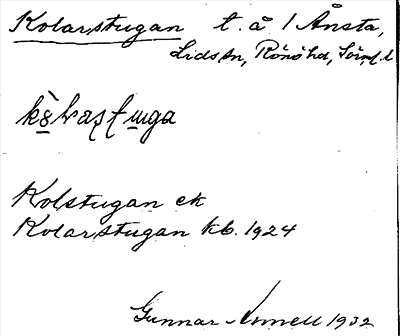 Kolarstugan t. å 1 Ånsta,
Lidsn, Rönö hd, Sörml. l
Kolstugan ek
Kolarstugan kb. 1924
Gunnar 1932